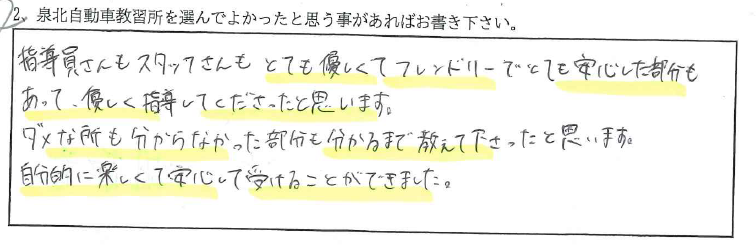 2. 泉北自動車教習所を選んでよかったと思う事があればお書き下さい。
指導員さんもスタッフさんもとても優しくてフレンドリーでとても安心した部分も
あって、優しく指導してくださったと思います。
ダメな所も分からなかった部分も分かるまで教えて下さったと思います。
自分的に楽しくて安心して受けることができました。